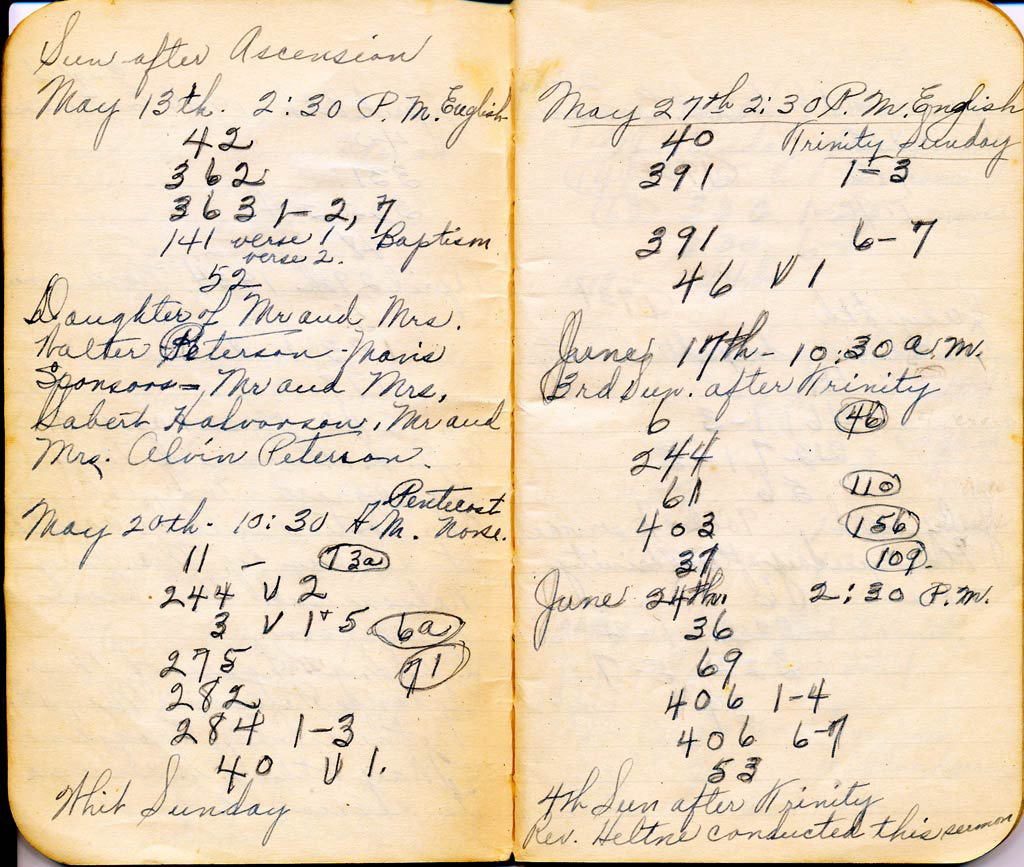 Sun after Ascension
May 13th. 2:30 P.M. English
42
362
363 1-2, 7
141 verse 1 Baptism
verse 2.
52
Daughter of Mr and Mrs.
Walter Peterson - Mavis
Sponsors = Mr and Mrs,
Sabert Halvorson, Mr and
Mrs. Alvin Peterson.
Pentecost
May 20th - 10:30 A.M. Norse.
11 - 73a
244 V 2
3 V 1+5 6a
275 71
282
284 1-3
40 V 1.
Whit Sunday
May 27th 2:30 P.M. English
40 Trinity Sunday
391 1-3
391 6-7
46 V 1
June 17th - 10:30 a.m.
3rd Sun. after Trinity
6 46
244
61 110
403 156
37 109.
June 24th. 2:30 P.M.
36
69
406 1-4
406 6-7
53
4th Sun after Trinity
Rev. Heltne conducted this sermon